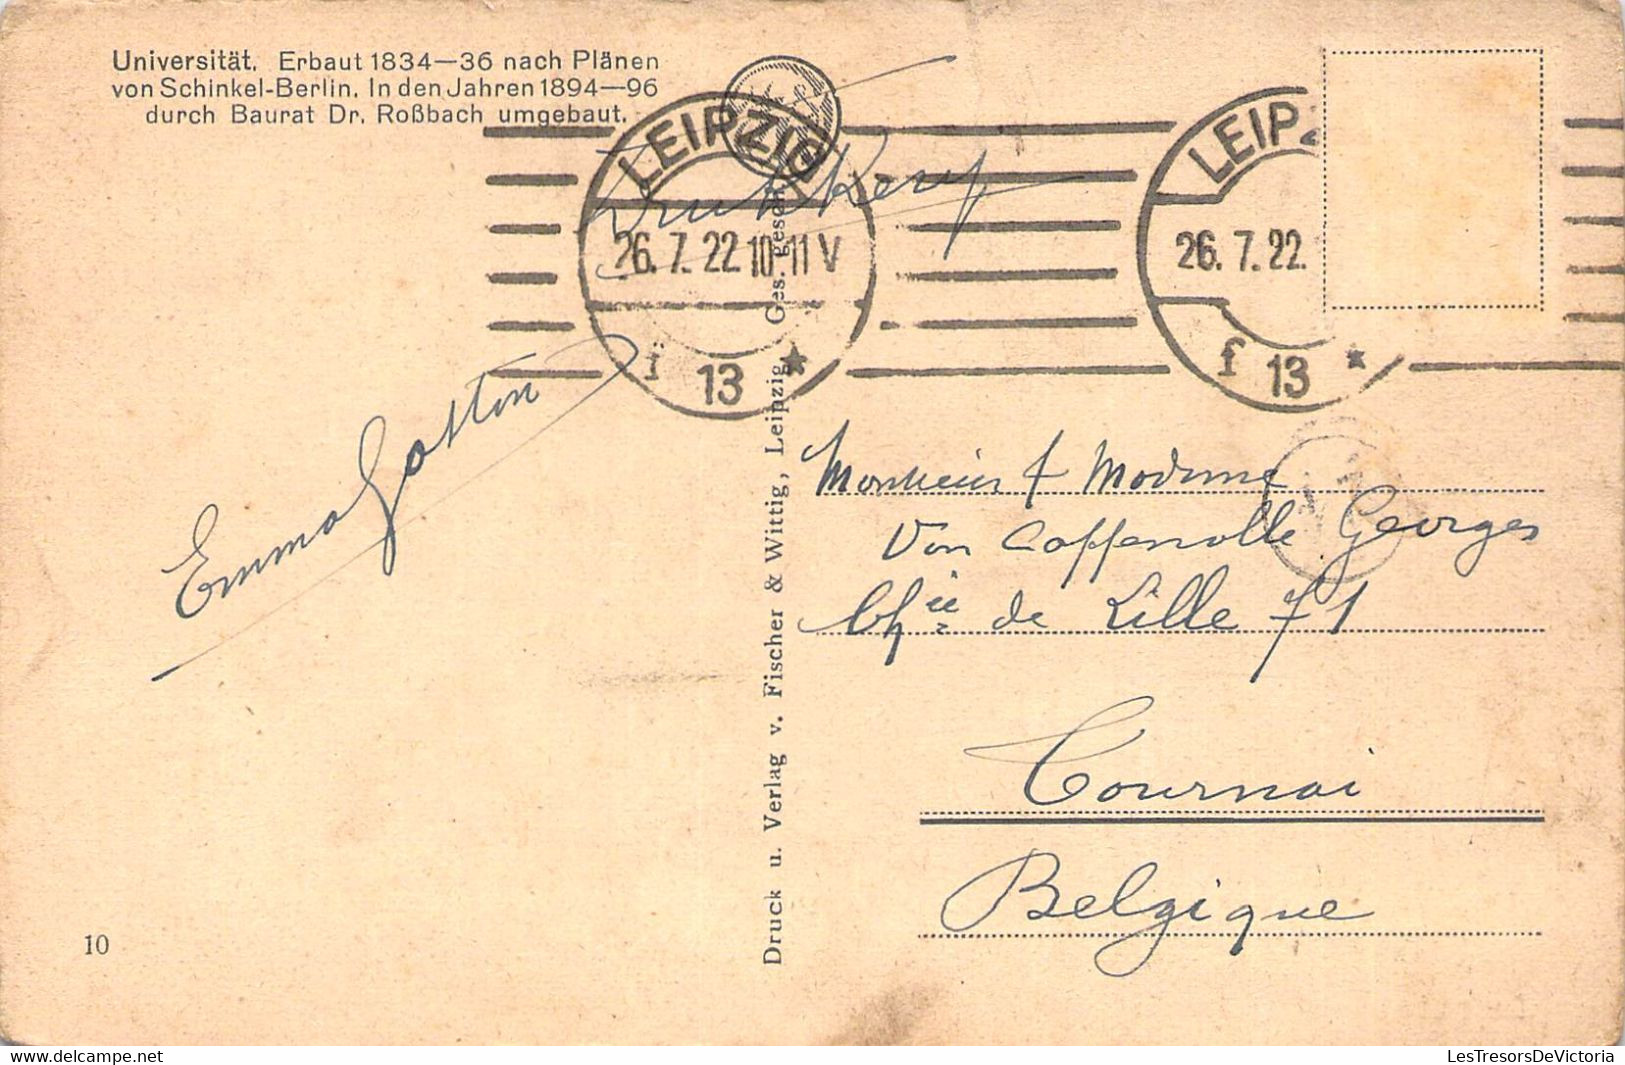 Universität. Erbaut 1834—36 nach Plänen
von Schinkel-Berlin. In den Jahren 1894—96
durch Baurat Dr. Roßbach umgebaut.
LEIPZIG
26.7.22 10-11 V
f 13 *
LEIPZ
26.7.22.
f 13 *
Drucksache
Emma Gatton
Druck u. Verlag v. Fischer & Wittig, Leipzig. Ges. gesch.
Monsieur & Madame
Van Coppenolle Georges
Chée de Lille 71
Tournai
Belgique
10
LesTresorsDeVictoria